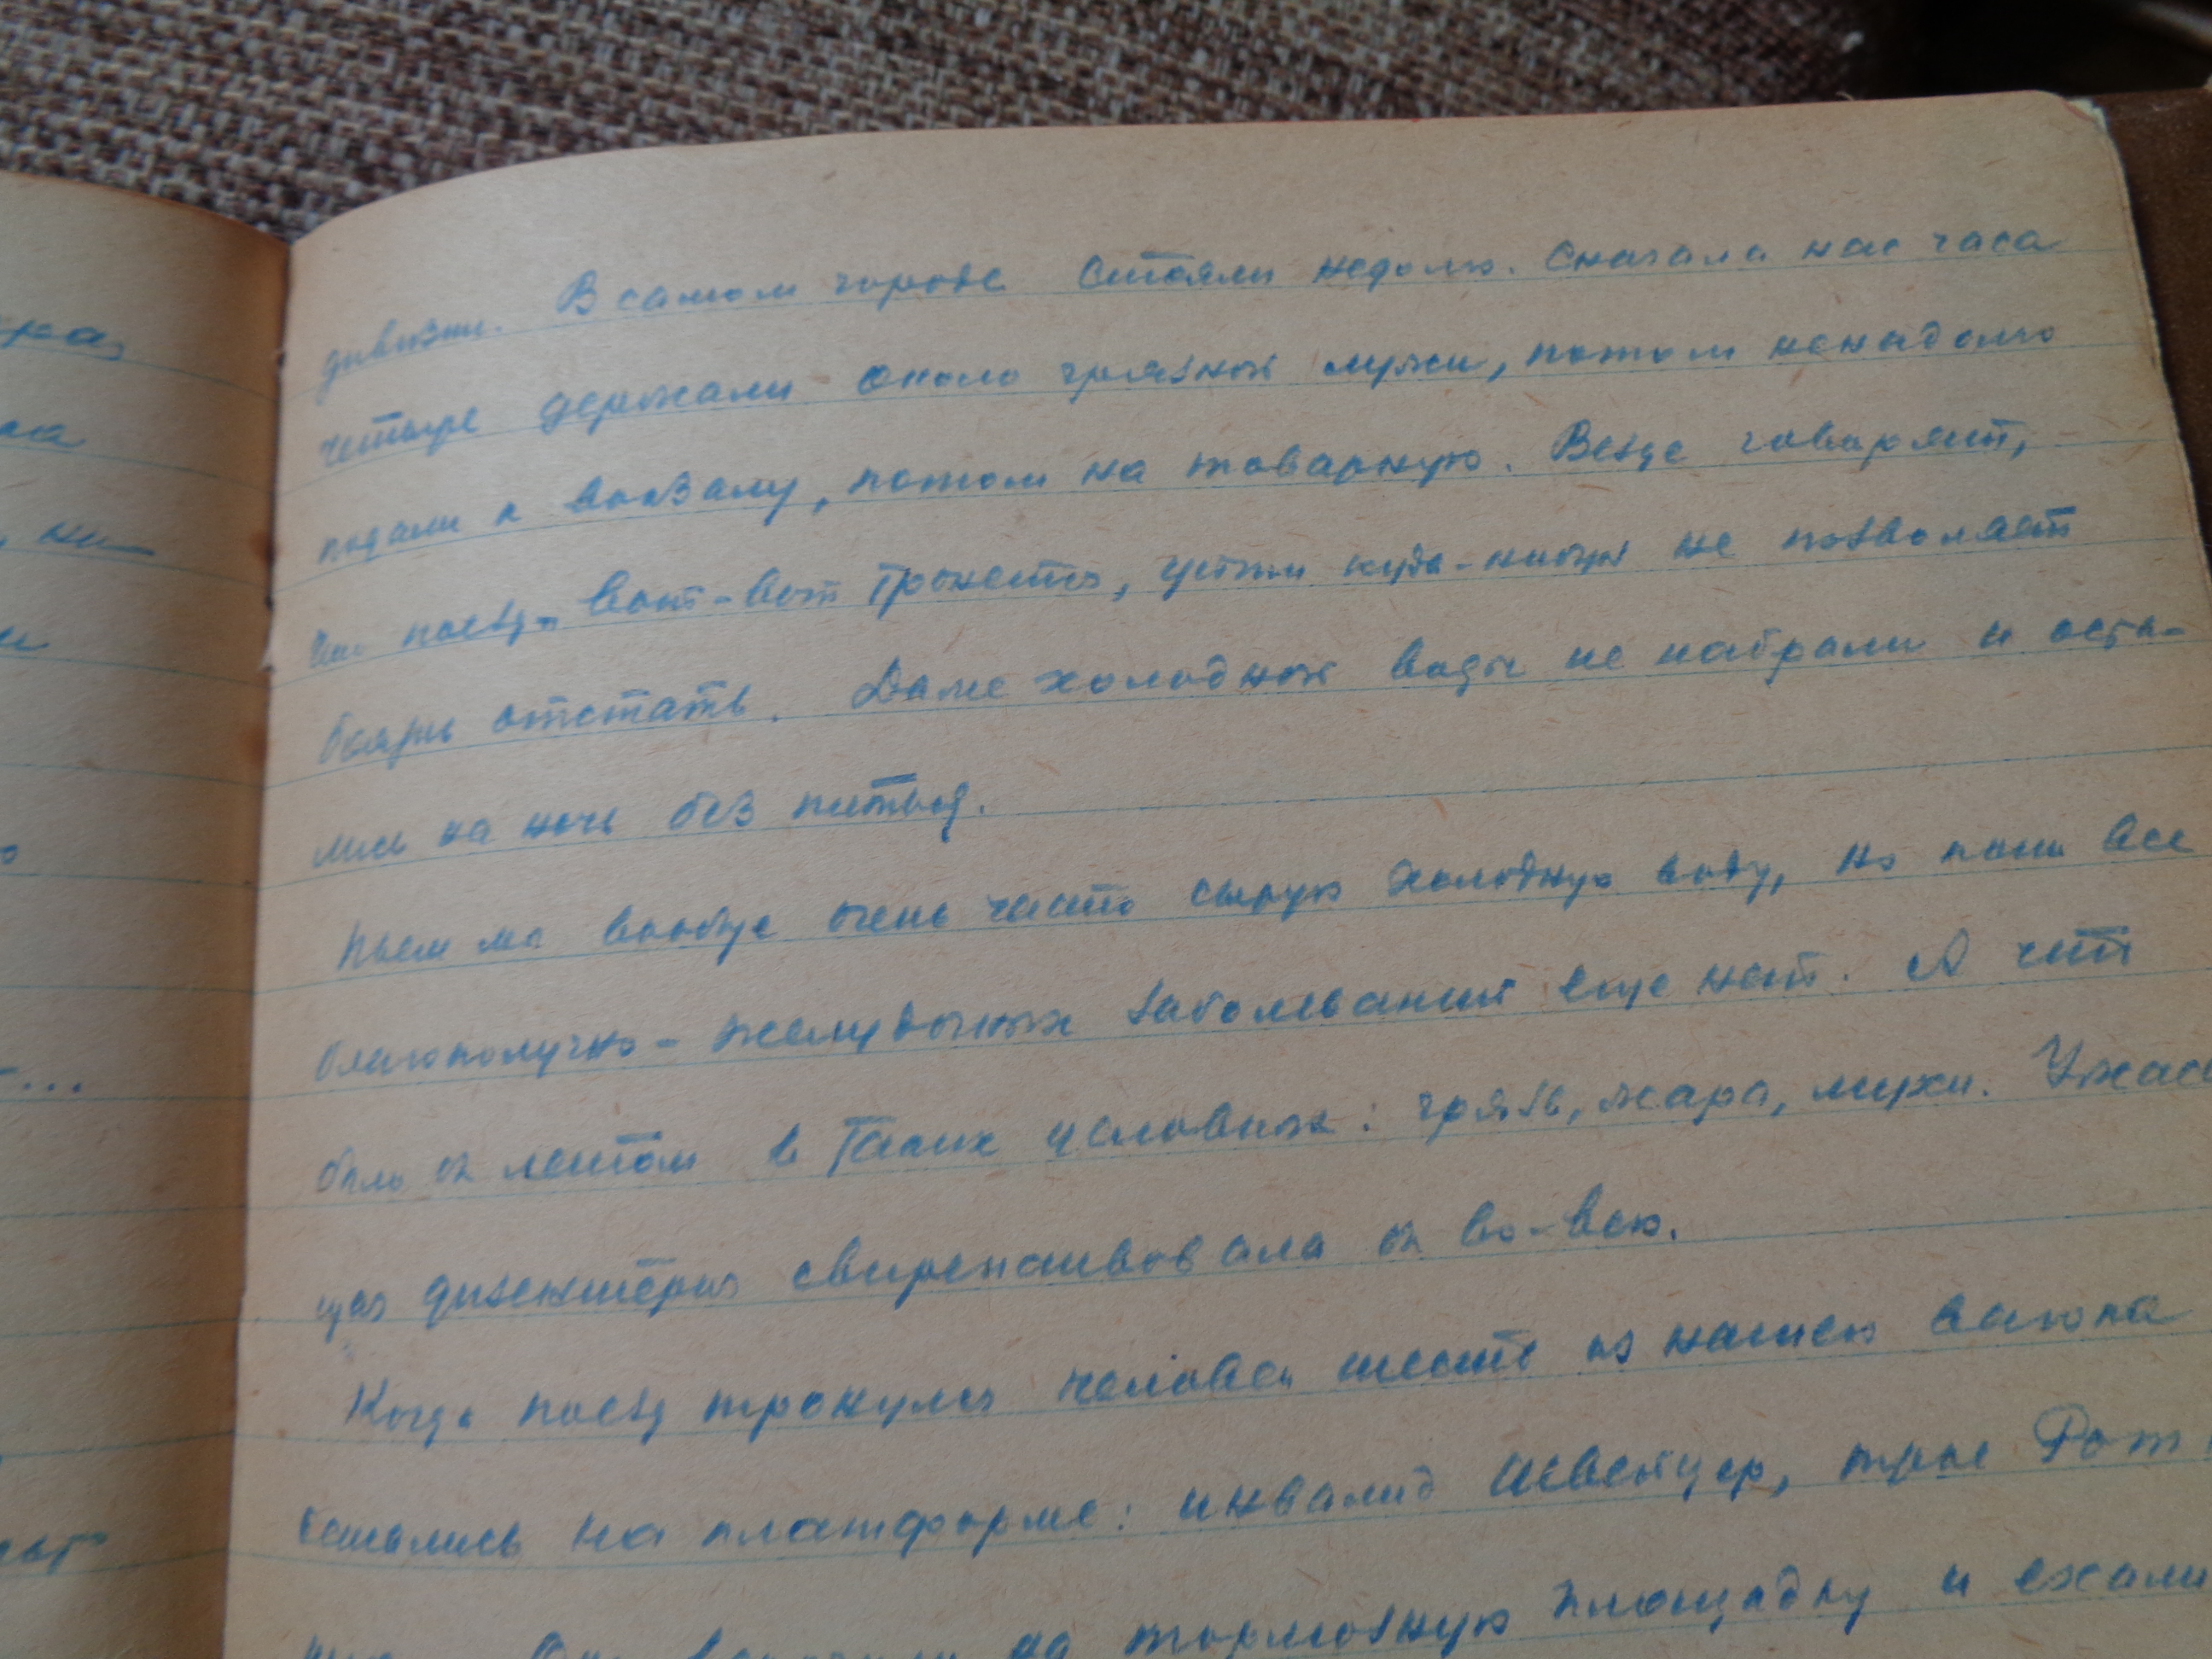 В самом городе стояли недолго. Сначала нас часа
четыре держали около грязной лужи, потом ненадолго
подали к вокзалу, потом на товарную. Везде говорят,
что поезд вот-вот тронется, уйти куда-нибудь не позволяет
боязнь отстать. Даже холодной воды не набрали и оста-
лись на ночь без питья.
Пьем мы вообще очень часто сырую холодную воду, но пока все
благополучно - желудочных заболеваний еще нет. А что
было бы летом в таких условиях: грязь, жара, мухи. Ужаса
щая дизентерия свирепствовала бы во-всю.
Когда поезд тронулся человек шесть из нашего вагона
остались на платформе: инвалид Швейцер, трое Рот
на тормозную площадку и ехали
раз
ка
ни-
и
...